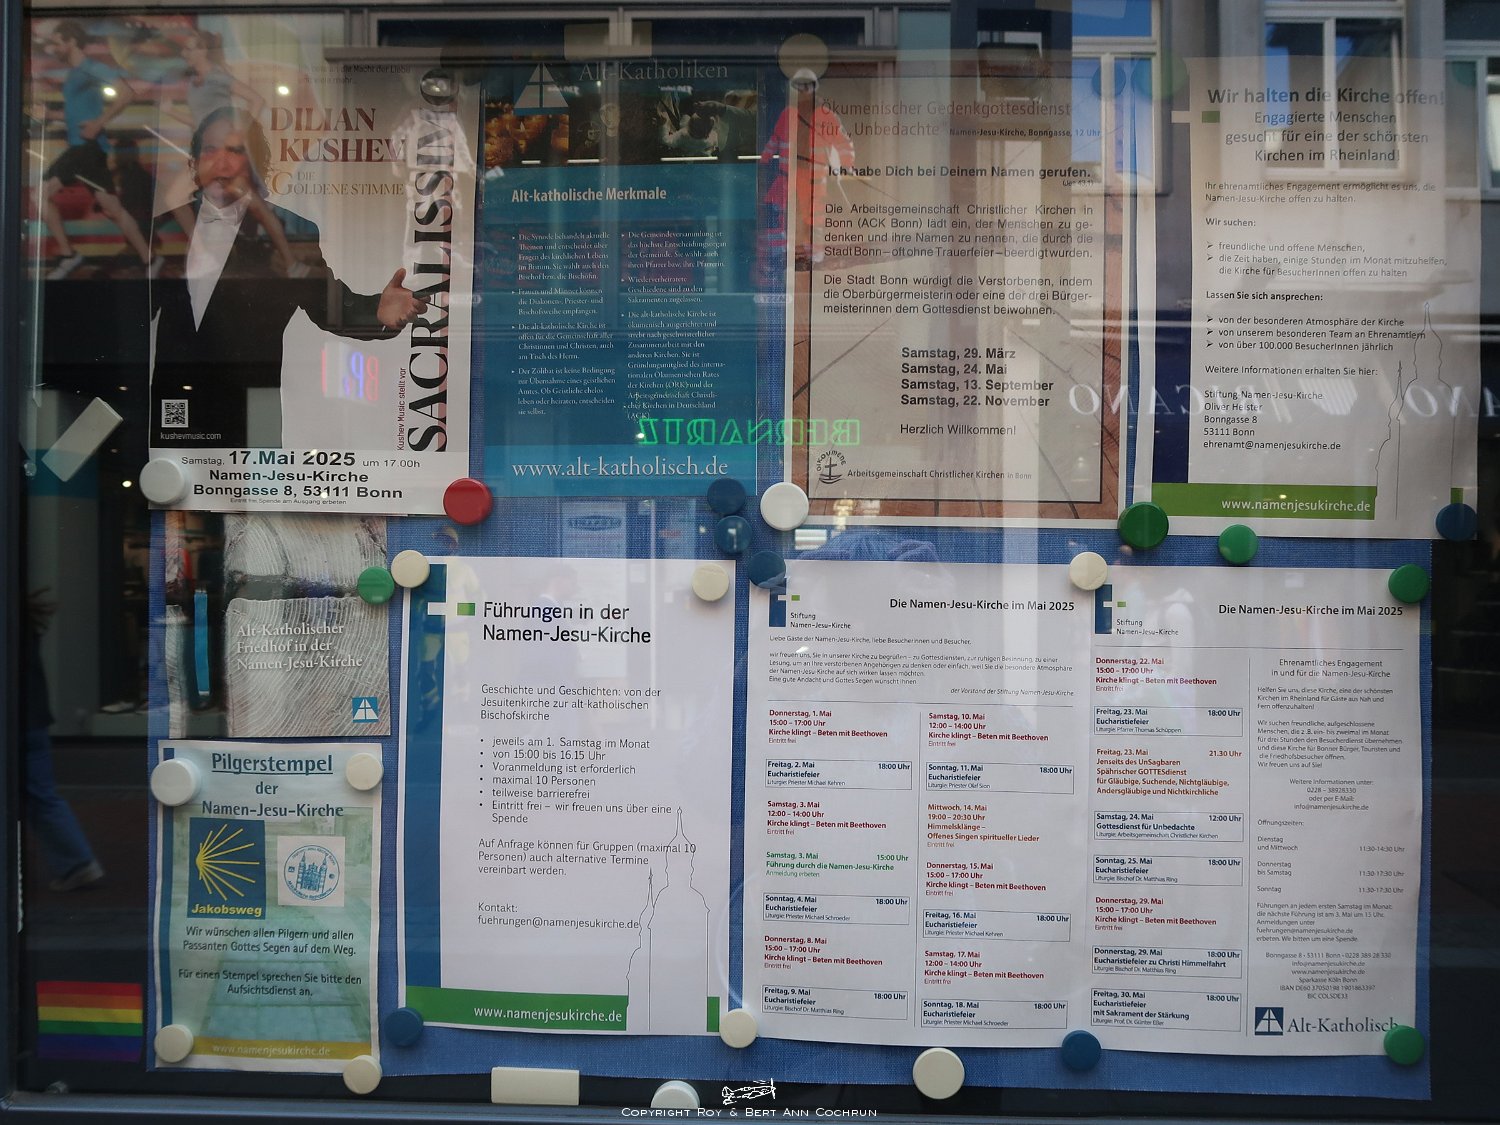 DILIAN
KUSHEV
DIE
GOLDENE STIMME
SACRALISSIMO
Kushev Music stellt vor
kushevmusic.com
Samstag, 17.Mai 2025 um 17.00h
Namen-Jesu-Kirche
Bonngasse 8, 53111 Bonn
Eintritt frei, Spende am Ausgang erbeten
Alt-Katholiken
Alt-katholische Merkmale
Die Synode behandelt aktuelle
Themen und entscheidet über
Fragen des kirchlichen Lebens
im Bistum. Sie wählt auch den
Bischof bzw. die Bischöfin.
Frauen und Männer können
die Diakonen-, Priester- und
Bischofsweihe empfangen.
Die alt-katholische Kirche ist
offen für die Gemeinschaft aller
Christinnen und Christen, auch
am Tisch des Herrn.
Der Zölibat ist keine Bedingung
zur Übernahme eines geistlichen
Amtes. Ob Geistliche ehelos
leben oder heiraten, entscheiden
sie selbst.
Die Gemeindeversammlung ist
das höchste Entscheidungsorgan
der Gemeinde. Sie wählt auch
ihren Pfarrer bzw. ihre Pfarrerin.
Wiederverheiratete
Geschiedene sind zu den
Sakramenten zugelassen.
Die alt-katholische Kirche ist
ökumenisch ausgerichtet und
strebt nach geschwisterlicher
Zusammenarbeit mit den
anderen Kirchen. Sie ist
Gründungsmitglied des interna-
tionalen Ökumenischen Rates
der Kirchen (ÖRK) und der
Arbeitsgemeinschaft Christli-
cher Kirchen in Deutschland
(ACK).
BERNARTZ
www.alt-katholisch.de
Ökumenischer Gedenkgottesdienst
für „Unbedachte“ Namen-Jesu-Kirche, Bonngasse, 12 Uhr
Ich habe Dich bei Deinem Namen gerufen.
(Jes 43,1)
Die Arbeitsgemeinschaft Christlicher Kirchen in
Bonn (ACK Bonn) lädt ein, der Menschen zu ge-
denken und ihre Namen zu nennen, die durch die
Stadt Bonn – oft ohne Trauerfeier – beerdigt wurden.
Die Stadt Bonn würdigt die Verstorbenen, indem
die Oberbürgermeisterin oder eine der drei Bürger-
meisterinnen dem Gottesdienst beiwohnen.
Samstag, 29. März
Samstag, 24. Mai
Samstag, 13. September
Samstag, 22. November
Herzlich Willkommen!
OIKOUMENE
Arbeitsgemeinschaft Christlicher Kirchen in Bonn
Wir halten die Kirche offen!
Engagierte Menschen
gesucht für eine der schönsten
Kirchen im Rheinland!
Ihr ehrenamtliches Engagement ermöglicht es uns, die
Namen-Jesu-Kirche offen zu halten.
Wir suchen:
freundliche und offene Menschen,
die Zeit haben, einige Stunden im Monat mitzuhelfen,
die Kirche für BesucherInnen offen zu halten
Lassen Sie sich ansprechen:
von der besonderen Atmosphäre der Kirche
von unserem besonderen Team an Ehrenamtlern
von über 100.000 BesucherInnen jährlich
Weitere Informationen erhalten Sie hier:
Stiftung Namen-Jesu-Kirche
Oliver Heister
Bonngasse 8
53111 Bonn
ehrenamt@namenjesukirche.de
www.namenjesukirche.de
Alt-Katholischer
Friedhof in der
Namen-Jesu-Kirche
Pilgerstempel
der
Namen-Jesu-Kirche
Jakobsweg
Wir wünschen allen Pilgern und allen
Passanten Gottes Segen auf dem Weg.
Für einen Stempel sprechen Sie bitte den
Aufsichtsdienst an.
www.namenjesukirche.de
Führungen in der
Namen-Jesu-Kirche
Geschichte und Geschichten: von der
Jesuitenkirche zur alt-katholischen
Bischofskirche
• jeweils am 1. Samstag im Monat
• von 15:00 bis 16.15 Uhr
• Voranmeldung ist erforderlich
• maximal 10 Personen
• teilweise barrierefrei
• Eintritt frei – wir freuen uns über eine
Spende
Auf Anfrage können für Gruppen (maximal 10
Personen) auch alternative Termine
vereinbart werden.
Kontakt:
fuehrungen@namenjesukirche.de
www.namenjesukirche.de
Stiftung
Namen-Jesu-Kirche
Die Namen-Jesu-Kirche im Mai 2025
Liebe Gäste der Namen-Jesu-Kirche, liebe Besucherinnen und Besucher,
wir freuen uns, Sie in unserer Kirche zu begrüßen – zu Gottesdiensten, zur ruhigen Besinnung, zu einer
Lesung, um an Ihre verstorbenen Angehörigen zu denken oder einfach, weil Sie die besondere Atmosphäre
der Namen-Jesu-Kirche auf sich wirken lassen möchten.
Eine gute Andacht und Gottes Segen wünscht Ihnen
der Vorstand der Stiftung Namen-Jesu-Kirche
Donnerstag, 1. Mai
15:00 – 17:00 Uhr
Kirche klingt – Beten mit Beethoven
Eintritt frei
Freitag, 2. Mai 18:00 Uhr
Eucharistiefeier
Liturgie: Priester Michael Kehren
Samstag, 3. Mai
12:00 – 14:00 Uhr
Kirche klingt – Beten mit Beethoven
Eintritt frei
Samstag, 3. Mai 15:00 Uhr
Führung durch die Namen-Jesu-Kirche
Anmeldung erbeten
Sonntag, 4. Mai 18:00 Uhr
Eucharistiefeier
Liturgie: Priester Michael Schroeder
Donnerstag, 8. Mai
15:00 – 17:00 Uhr
Kirche klingt – Beten mit Beethoven
Eintritt frei
Freitag, 9. Mai 18:00 Uhr
Eucharistiefeier
Liturgie: Bischof Dr. Matthias Ring
Samstag, 10. Mai
12:00 – 14:00 Uhr
Kirche klingt – Beten mit Beethoven
Eintritt frei
Sonntag, 11. Mai 18:00 Uhr
Eucharistiefeier
Liturgie: Priester Olaf Sion
Mittwoch, 14. Mai
19:00 – 20:30 Uhr
Himmelsklänge –
Offenes Singen spiritueller Lieder
Eintritt frei
Donnerstag, 15. Mai
15:00 – 17:00 Uhr
Kirche klingt – Beten mit Beethoven
Eintritt frei
Freitag, 16. Mai 18:00 Uhr
Eucharistiefeier
Liturgie: Priester Michael Kehren
Samstag, 17. Mai
12:00 – 14:00 Uhr
Kirche klingt – Beten mit Beethoven
Eintritt frei
Sonntag, 18. Mai 18:00 Uhr
Eucharistiefeier
Liturgie: Priester Michael Schroeder
Stiftung
Namen-Jesu-Kirche
Die Namen-Jesu-Kirche im Mai 2025
Donnerstag, 22. Mai
15:00 – 17:00 Uhr
Kirche klingt – Beten mit Beethoven
Eintritt frei
Freitag, 23. Mai 18:00 Uhr
Eucharistiefeier
Liturgie: Pfarrer Thomas Schüppen
Freitag, 23. Mai 21.30 Uhr
Jenseits des UnSagbaren
Spährischer GOTTESdienst
für Gläubige, Suchende, Nichtgläubige,
Andersgläubige und Nichtkirchliche
Samstag, 24. Mai 12:00 Uhr
Gottesdienst für Unbedachte
Liturgie: Arbeitsgemeinschaft Christlicher Kirchen
Sonntag, 25. Mai 18:00 Uhr
Eucharistiefeier
Liturgie: Bischof Dr. Matthias Ring
Donnerstag, 29. Mai
15:00 – 17:00 Uhr
Kirche klingt – Beten mit Beethoven
Eintritt frei
Donnerstag, 29. Mai 18:00 Uhr
Eucharistiefeier zu Christi Himmelfahrt
Liturgie: Bischof Dr. Matthias Ring
Freitag, 30. Mai 18:00 Uhr
Eucharistiefeier
mit Sakrament der Stärkung
Liturgie: Prof. Dr. Günter Eßer
Ehrenamtliches Engagement
in und für die Namen-Jesu-Kirche
Helfen Sie uns, diese Kirche, eine der schönsten
Kirchen im Rheinland für Gäste aus Nah und
Fern offenzuhalten!
Wir suchen freundliche, aufgeschlossene
Menschen, die z.B. ein- bis zweimal im Monat
für drei Stunden den Besucherdienst übernehmen
und diese Kirche für Bonner Bürger, Touristen und
die Friedhofsbesucher öffnen.
Wir freuen uns auf Sie!
Weitere Informationen unter:
0228 – 38928330
oder per E-Mail:
info@namenjesukirche.de
Öffnungszeiten:
Dienstag
und Mittwoch 11:30-14:30 Uhr
Donnerstag
bis Samstag 11:30-17:30 Uhr
Sonntag 11:30-17:30 Uhr
Führungen an jedem ersten Samstag im Monat:
die nächste Führung ist am 3. Mai um 15 Uhr.
Anmeldungen unter
fuehrungen@namenjesukirche.de
erbeten. Wir bitten um eine Spende.
Bonngasse 8 · 53111 Bonn · 0228 389 28 330
info@namenjesukirche.de
www.namenjesukirche.de
Sparkasse Köln Bonn
IBAN DE60 37050198 1901863397
BIC COLSDE33
Alt-Katholisch
Copyright Roy & Bert Ann Cochrun